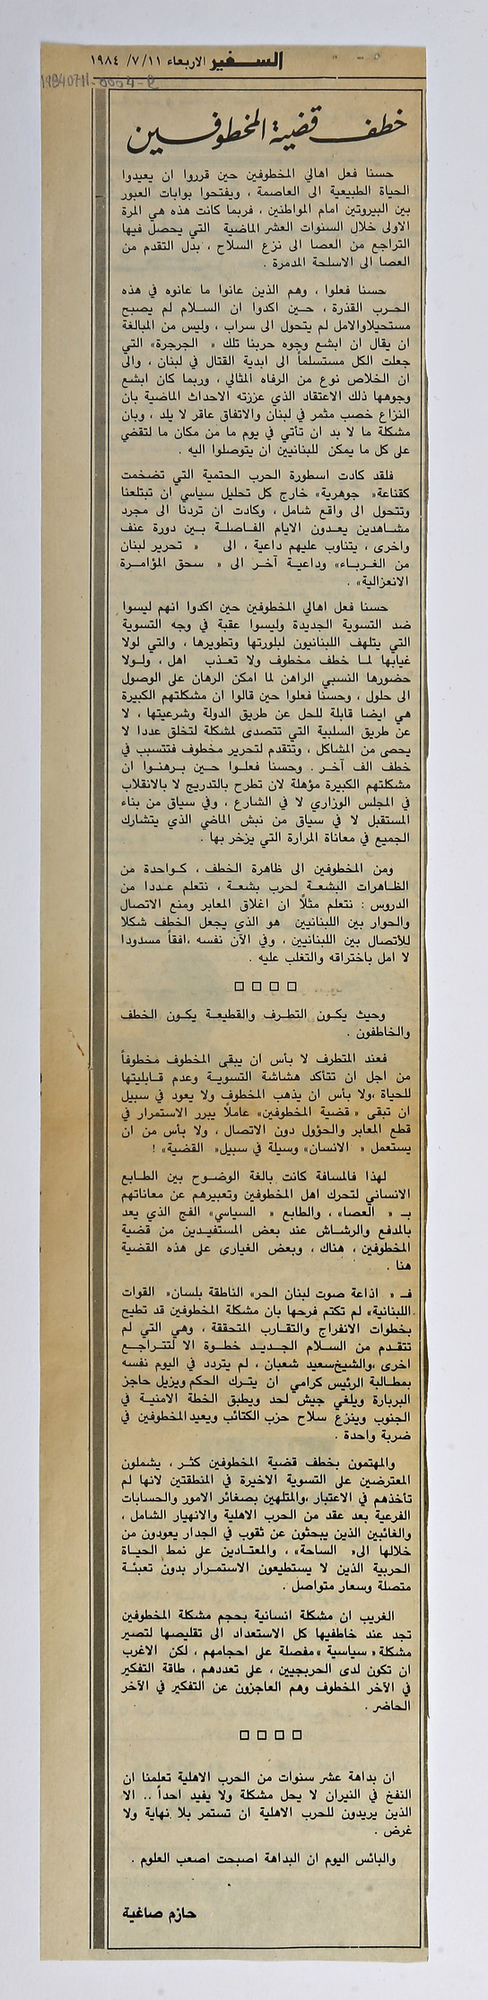 السفير الاربعاء ١١/ ٧/ ١٩٨٤
19840711-0004-P
خطف قضية المخطوفين
حسنا فعل اهالي المخطوفين حين قرروا ان يعيدوا
الحياة الطبيعية الى العاصمة ، ويفتحوا بوابات العبور
بين البيروتين امام المواطنين ، فربما كانت هذه هي المرة
الاولى خلال السنوات العشر الماضية التي يحصل فيها
التراجع من العصا الى نزع السلاح ، بدل التقدم من
العصا الى الاسلحة المدمرة .
حسنا فعلوا ، وهم الذين عانوا ما عانوه في هذه
الحرب القذرة ، حين اكدوا ان السلام لم يصبح
مستحيلاوالامل لم يتحول الى سراب ، وليس من المبالغة
ان يقال ان ابشع وجوه حربنا تلك « الجرجرة» التي
جعلت الكل مستسلماً الى ابدية القتال في لبنان ، والى
ان الخلاص نوع من الرفاه المثالي ، وربما كان ابشع
وجوهها ذلك الاعتقاد الذي عززته الاحداث الماضية بان
النزاع خصب مثمر في لبنان والاتفاق عاقر لا يلد ، وبان
مشكلة ما لا بد ان تأتي في يوم ما من مكان ما لتقضي
على كل ما يمكن للبنانيين ان يتوصلوا اليه .
فلقد كادت اسطورة الحرب الحتمية التي تضخمت
كقناعة« جوهرية» خارج كل تحليل سياسي ان تبتلعنا
وتتحول الى واقع شامل ، وكادت ان تردنا الى مجرد
مشاهدين يعدون الايام الفاصلة بين دورة عنف
واخرى ، يتناوب عليهم داعية ، الى « تحرير لبنان
من الغرباء» وداعية آخر الى « سحق المؤامرة
الانعزالية» .
حسنا فعل اهالي المخطوفين حين اكدوا انهم ليسوا
ضد التسوية الجديدة وليسوا عقبة في وجه التسوية
التي يتلهف اللبنانيون لبلورتها وتطويرها ، والتي لولا
غيابها لما خطف مخطوف ولا تعذب اهل ، ولولا
حضورها النسبي الراهن لما امكن الرهان على الوصول
الى حلول ، وحسنا فعلوا حين قالوا ان مشكلتهم الكبيرة
هي ايضا قابلة للحل عن طريق الدولة وشرعيتها ، لا
عن طريق السلبية التي تتصدى لمشكلة لتخلق عددا لا
يحصى من المشاكل ، وتتقدم لتحرير مخطوف فتتسبب في
خطف الف آخر . وحسنا فعلوا حين برهنوا ان
مشكلتهم الكبيرة مؤهلة لان تطرح بالتدريج لا بالانقلاب
في المجلس الوزاري لا في الشارع ، وفي سياق من بناء
المستقبل لا في سياق من نبش الماضي الذي يتشارك
الجميع في معاناة المرارة التي يزخر بها .
ومن المخطوفين الى ظاهرة الخطف ، كواحدة من
الظاهرات البشعة لحرب بشعة ، نتعلم عددا من
الدروس : نتعلم مثلاً ان اغلاق المعابر ومنع الاتصال
والحوار بين اللبنانيين هو الذي يجعل الخطف شكلا
للاتصال بين اللبنانيين ، وفي الآن نفسه ،افقاً مسدودا
لا امل باختراقه والتغلب عليه .
□ □ □ □
وحيث يكون التطرف والقطيعة يكون الخطف
والخاطفون .
فعند المتطرف لا بأس ان يبقى المخطوف مخطوفاً
من اجل ان تتأكد هشاشة التسوية وعدم قابليتها
للحياة ،ولا بأس ان يذهب المخطوف ولا يعود في سبيل
ان تبقى « قضية المخطوفين» عاملاً يبرر الاستمرار في
قطع المعابر والحؤول دون الاتصال ، ولا بأس من ان
يستعمل « الانسان» وسيلة في سبيل« القضية» !
لهذا فالمسافة كانت بالغة الوضوح بين الطابع
الانساني لتحرك اهل المخطوفين وتعبيرهم عن معاناتهم
بـ « العصا» ، والطابع « السياسي» الفج الذي يعد
بالمدفع والرشاش عند بعض المستفيدين من قضية
المخطوفين ، هناك ، وبعض الغيارى على هذه القضية
هنا .
فـ « اذاعة صوت لبنان الحر» الناطقة بلسان« القوات
اللبنانية» لم تكتم فرحها بان مشكلة المخطوفين قد تطيح
بخطوات الانفراج والتقارب المتحققة ، وهي التي لم
تتقدم من السلام الجديد خطوة الا لتتراجع
اخرى ،والشيخ سعيد شعبان ، لم يتردد في اليوم نفسه
بمطالبة الرئيس كرامي ان يترك الحكم ويزيل حاجز
البربارة ويلغي جيش لحد ويطبق الخطة الامنية في
الجنوب وينزع سلاح حزب الكتائب ويعيد المخطوفين في
ضربة واحدة .
والمهتمون بخطف قضية المخطوفين كثر ، يشملون
المعترضين على التسوية الاخيرة في المنطقتين لانها لم
تأخذهم في الاعتبار ،والمتلهين بصغائر الامور والحسابات
الفرعية بعد عقد من الحرب الاهلية والانهيار الشامل ،
والغائبين الذين يبحثون عن ثقوب في الجدار يعودون من
خلالها الى« الساحة» ، والمعتادين على نمط الحياة
الحربية الذين لا يستطيعون الاستمرار بدون تعبئة
متصلة وسعار متواصل .
الغريب ان مشكلة انسانية بحجم مشكلة المخطوفين
تجد عند خاطفيها كل الاستعداد الى تقليصها لتصير
مشكلة« سياسية »مفصلة على احجامهم ، لكن الاغرب
ان تكون لدى الحربجيين ، على تعددهم ، طاقة التفكير
في الآخر المخطوف وهم العاجزون عن التفكير في الآخر
الحاضر .
□ □ □ □
ان بداهة عشر سنوات من الحرب الاهلية تعلمنا ان
النفخ في النيران لا يحل مشكلة ولا يفيد احداً .. الا
الذين يريدون للحرب الاهلية ان تستمر بلا نهاية ولا
غرض .
والبائس اليوم ان البداهة اصبحت اصعب العلوم .
حازم صاغية